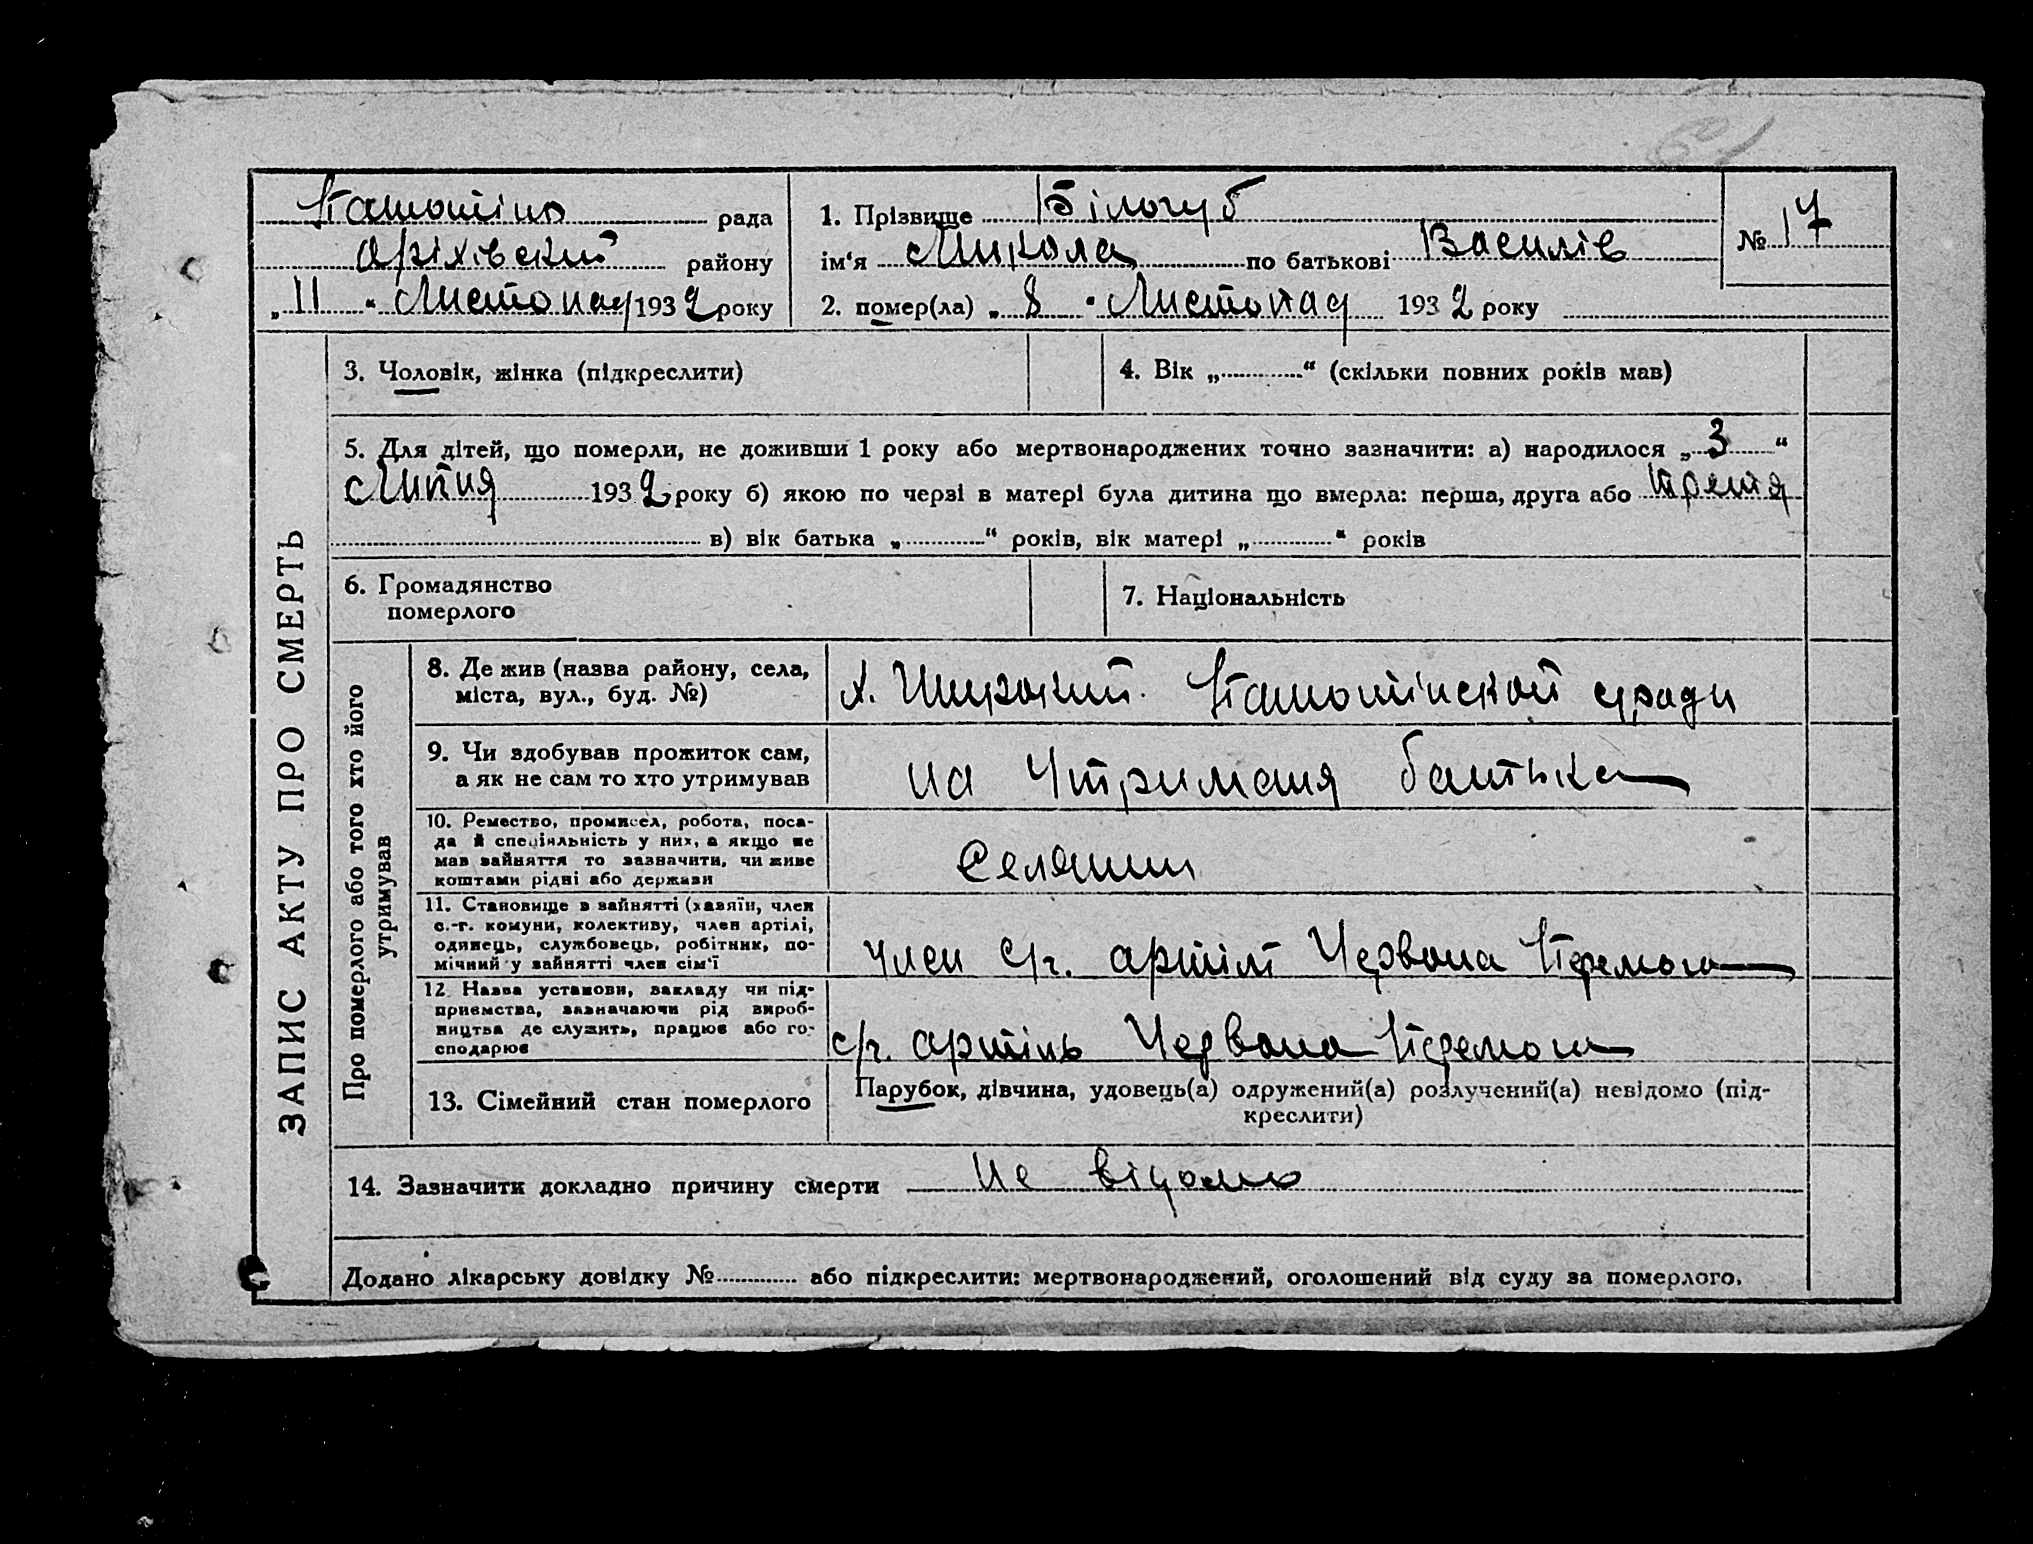 рада
Оріхівский району
„ 11 “ Листопад 1932 року
1. Прізвище Білогуб
ім‘я Микола по батькові Василів
2. помер(ла) „ 8 “ Листопад 1932 року
№ 17
ЗАПИС АКТУ ПРО СМЕРТЬ
3. Чоловік, жінка (підкреслити)
4. Вік „ “ (скільки повних років мав)
5. Для дітей, що померли, не доживши 1 року або мертвонароджених точно зазначити: а) народилося „ 3 “
Липня 1932 року б) якою по черзі в матері була дитина що вмерла: перша, друга або третя
в) вік батька „ “ років, вік матері „ “ років
6. Громадянство
померлого
7. Національність
Про померлого або того хто його
утримував
8. Де жив (назва району, села,
міста, вул., буд. №)
х. Широкий. с/ради
9. Чи здобував прожиток сам,
а як не сам то хто утримував
на утриманя батька
10. Ремество, промисел, робота, поса-
да й спеціяльність у них, а якщо не
мав зайняття то зазначити, чи живе
коштами рідні або держави
Селянин
11. Становище в зайнятті (хазяїн, член
с.-г. комуни, колективу, член артілі,
одинець, службовець, робітник, по-
мічний у зайнятті член сім‘ї
член с/г. артілі Червона Перемога
12. Назва установи, закладу чи під-
приємства, зазначаючи рід вироб-
ництва де служить, працює або го-
сподарює
с/г. артіль Червона Перемога
13. Сімейний стан померлого
Парубок, дівчина, удовець(а) одружений(а) розлучений(а) невідомо (під-
креслити)
14. Зазначити докладно причину смерти Не відомо
Додано лікарську довідку № або підкреслити: мертвонароджений, оголошений від суду за померлого.